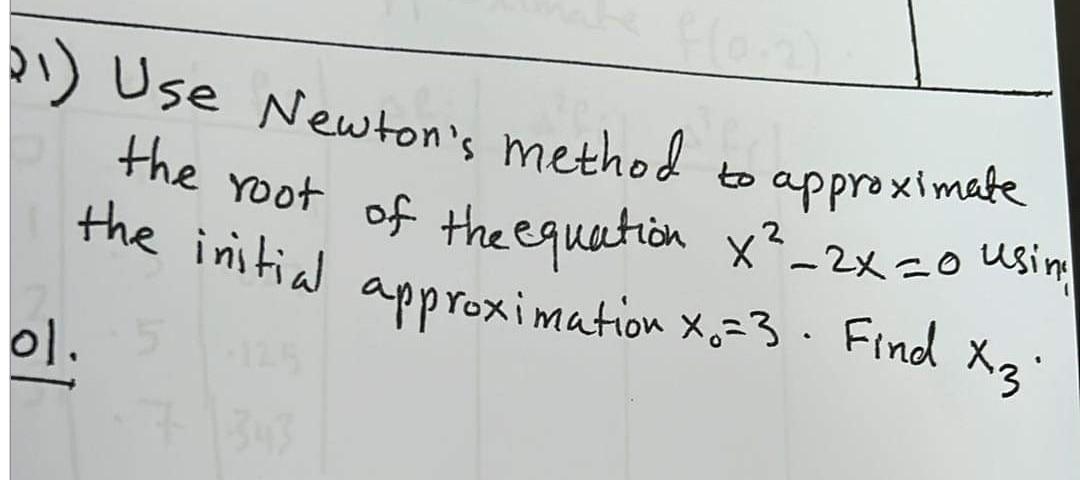 Q1) Use Newton's method to approximate
the root of the equation x² - 2x = 0 using
the initial approximation x₀ = 3 . Find x₃ .
ol.